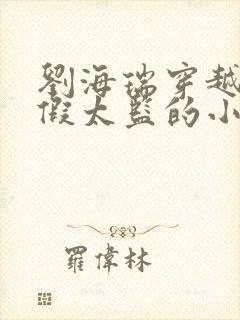 劉海瑞穿越
假太監的小
羅偉林